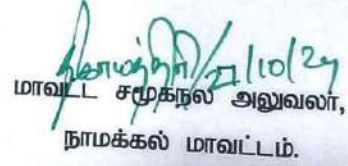 21/10/24
மாவட்ட சமூகநல அலுவலர்,
நாமக்கல் மாவட்டம்.